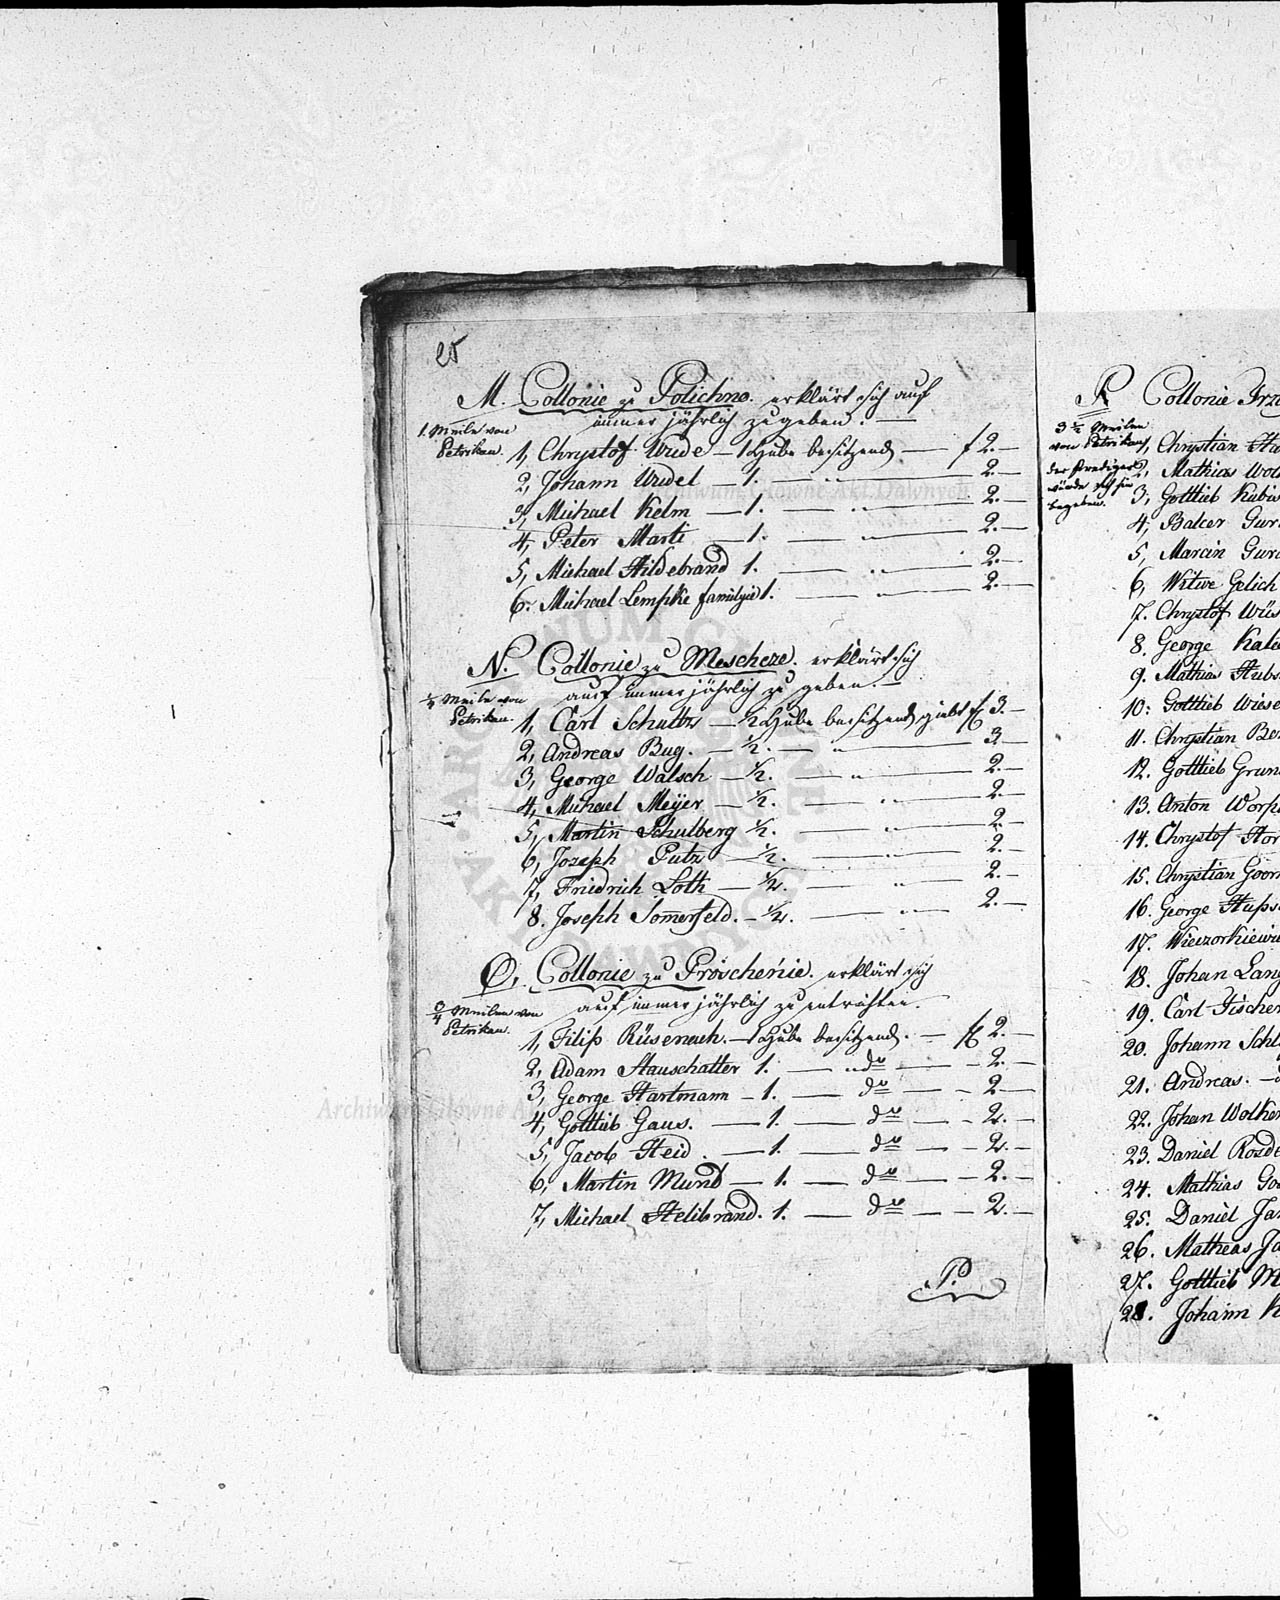 25
M. Collonie zu Polichno. erklärt sich auf
immer jährlich zu geben. —
1. Meile von
Petrikau.
1, Chrystof Wude — 1 Hube besitzend — f 2. —
2, Johann Wudel — 1. — " — 2. —
3, Michael Kelm — 1. — " — 2. —
4, Peter Marti — 1. — " — 2. —
5, Michael Hildebrand 1. — " — 2. —
6. Michael Lempke familyie 1. — " — 2. —
N. Collonie zu Mescheze. erklärt sich
auf immer jährlich zu geben. —
Meile von
Petrikau.
1, Carl Schultz — ½ Hube besitzend giebt f 3. —
2, Andreas Bug. — ½. — " — 3 —
3, George Walsch — ½. — " — 2. —
4, Michael Meÿer — ½. — " — 2. —
5, Martin Schulberg ½. — " — 2. —
6, Joseph Putz — ½. — " — 2. —
7, Friedrich Loth — ½. — " — 2. —
8. Joseph Somerfeld. — ½. — " — 2. —
O, Collonie zu Proschenie. erklärt sich
auf immer jährlich zu entrichten.
¾ Meilen von
Petrikau.
1, Filip Rüseneuh. — 1 Hube besitzend. — f 2. —
2, Adam Stauschatter 1. — do — 2. —
3, George Hartmann — 1. — do — 2 —
4, Gottlieb Gaus. — 1. — do — 2. —
5, Jacob Heid. — 1. — do — 2. —
6, Martin Mund — 1. — do — 2. —
7, Michael Helibrand. 1. — do — 2. —
P.
P. Collonie Trze
3½ Meilen
von Petrikau
der Prediger
würde sich hin
begeben.
1, Chrystian
2, Mathias
3, Gottlieb
4, Balcer
5, Marcin
6, Witwe Gelich
7. Chrystof
8. George
9. Mathias
10: Gottlieb
11. Chrystian
12. Gottlieb
13. Anton
14. Chrystof
15. Chrystian
16. George
17.
18. Johan Lang
19. Carl Fischer
20. Johann
21. Andreas. —
22. Johan
23. Daniel
24. Mathias
25. Daniel
26. Matheas
27. Gottlieb
28. Johann
Archiwum Główne Akt Dawnych